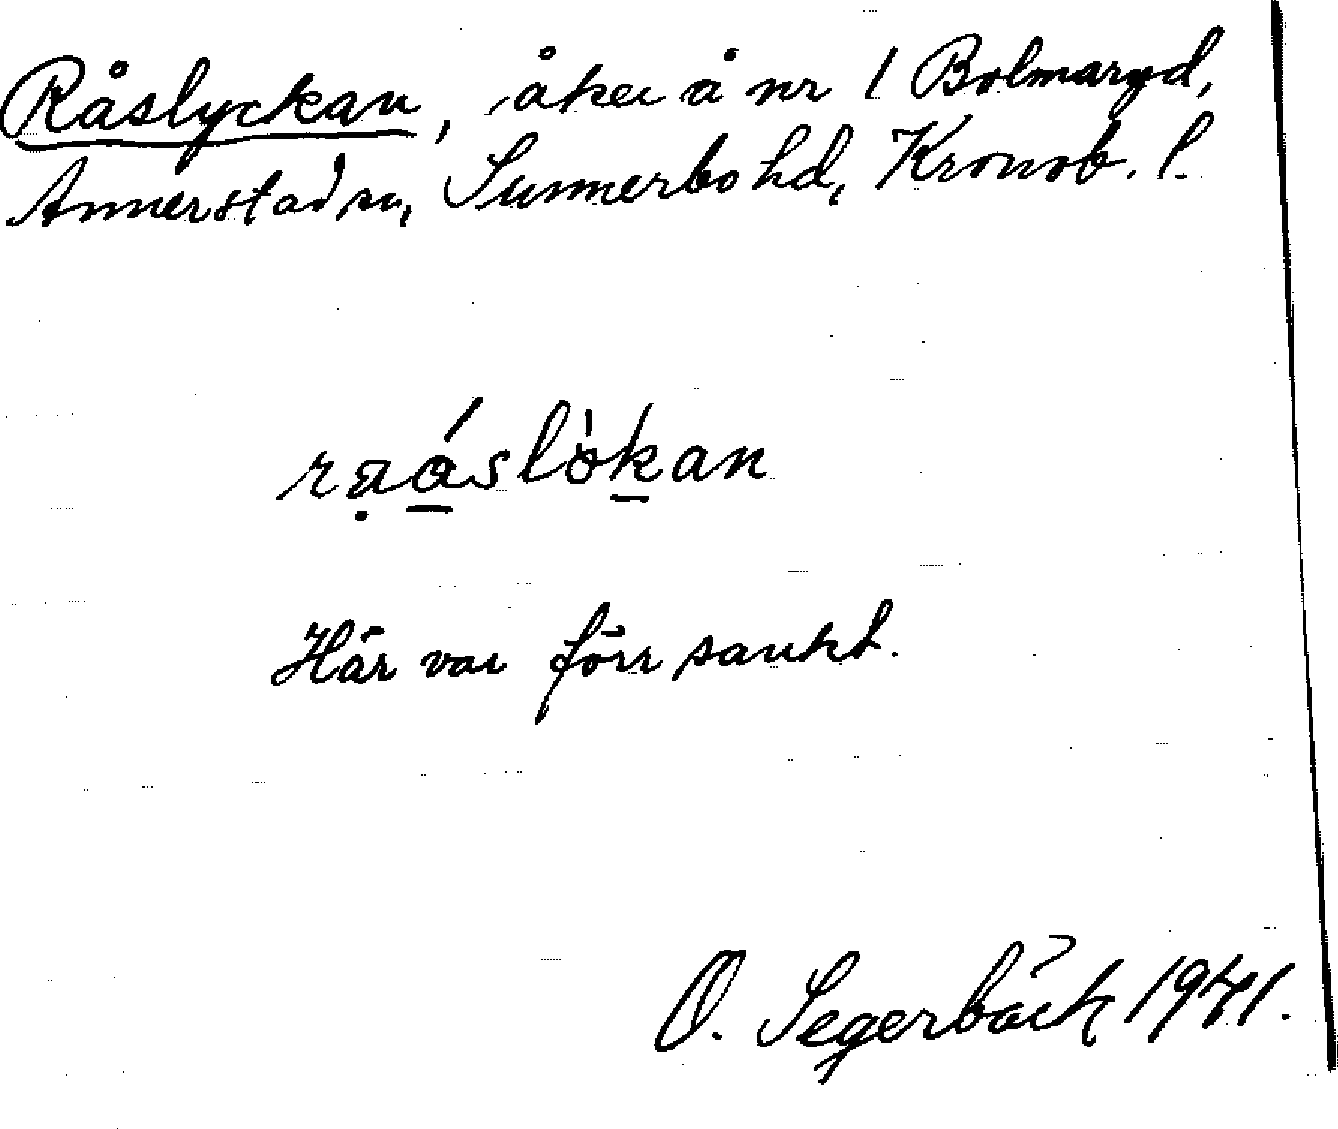 Råslyckan, åker å nr 1 Bolmaryd,
Annerstad sn, Sunnerbo hd, Kronob. l.
rạá̲slòk̲an
Här var förr sankt.
O. Segerbäck 1941.